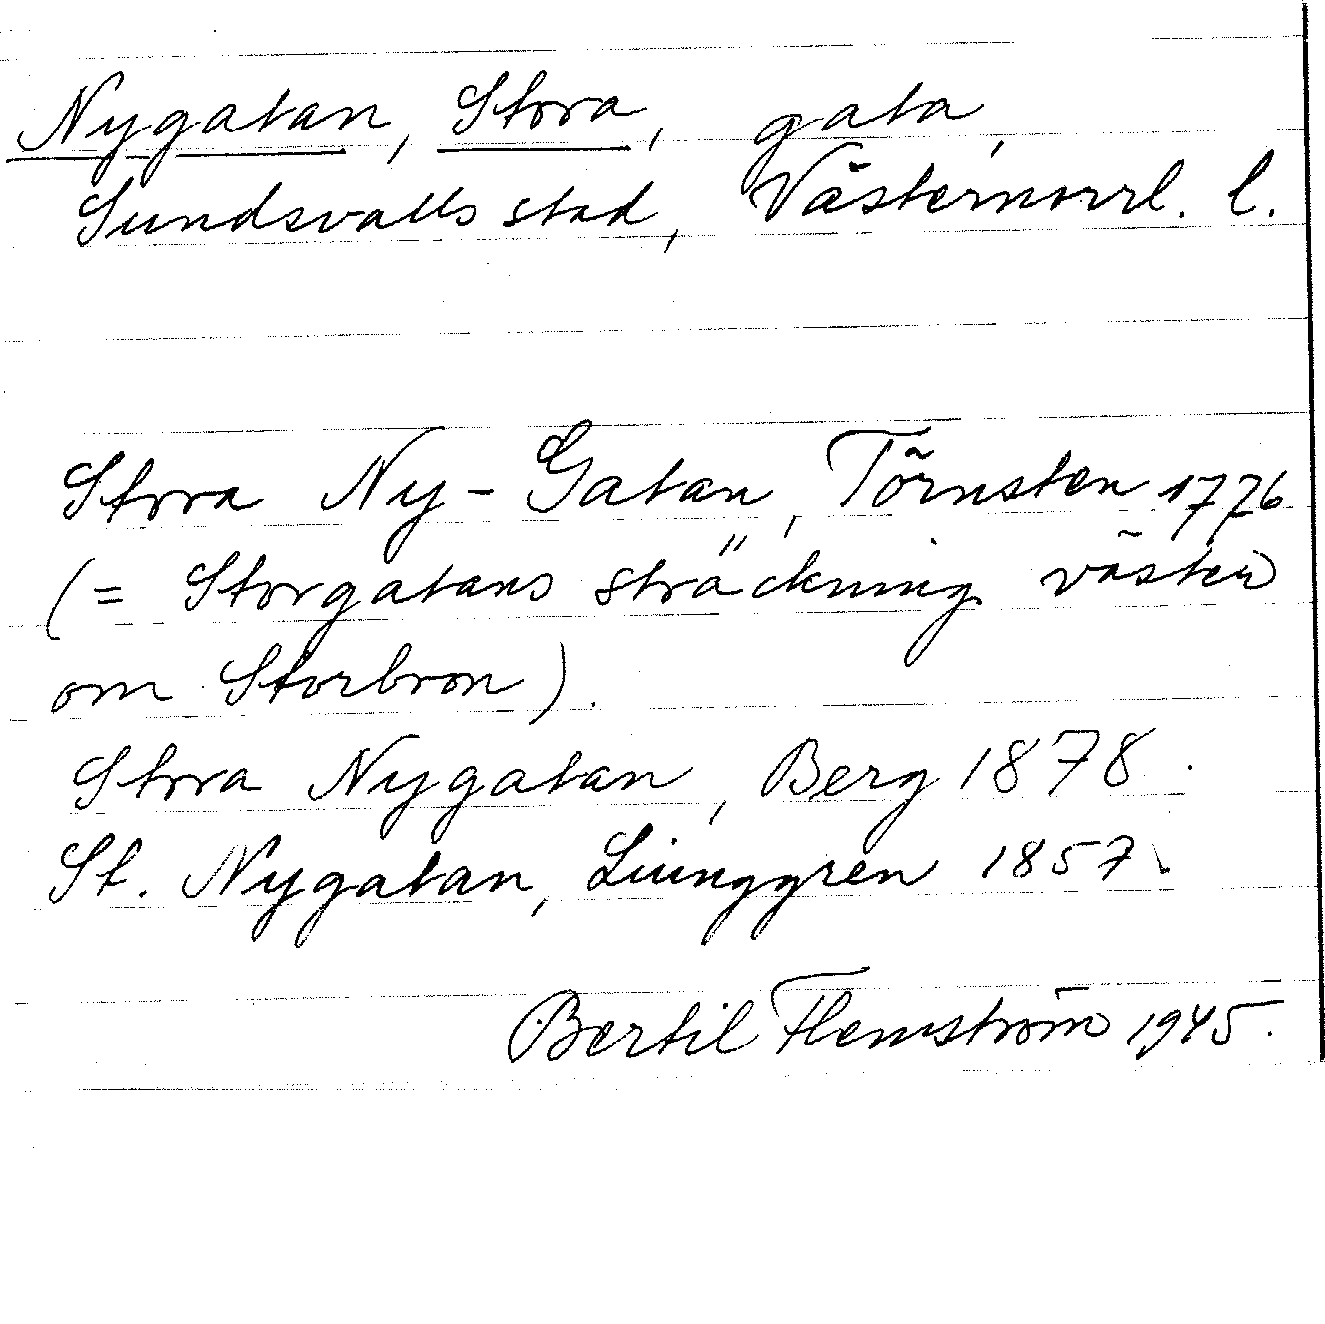 Nygatan, Stora, gata,
Sundsvalls stad, Västernorrl. l.
Stora Ny-Gatan, Törnsten 1776
(= Storgatans sträckning väster
om Storbron).
Stora Nygatan, Berg 1878.
St. Nygatan, Liunggren 1857.
Bertil Flemström 1945.